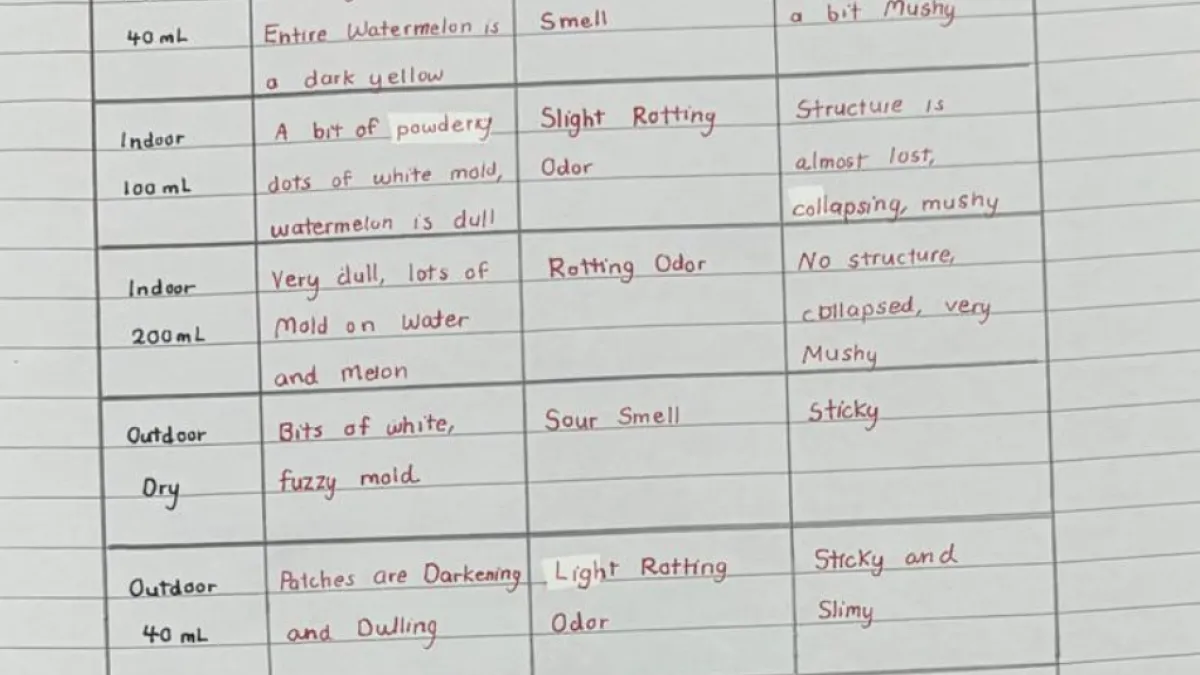 40 mL
Entire Watermelon is
a dark yellow
Smell
a bit Mushy
Indoor
100 mL
A bit of powdery
dots of white mold,
watermelon is dull
Slight Rotting
Odor
Structure is
almost lost,
collapsing, mushy
Indoor
200 mL
Very dull, lots of
Mold on water
and melon
Rotting Odor
No structure,
collapsed, very
Mushy
Outdoor
Dry
Bits of white,
fuzzy mold
Sour Smell
Sticky
Outdoor
40 mL
Patches are Darkening
and Dulling
Light Rotting
Odor
Sticky and
Slimy